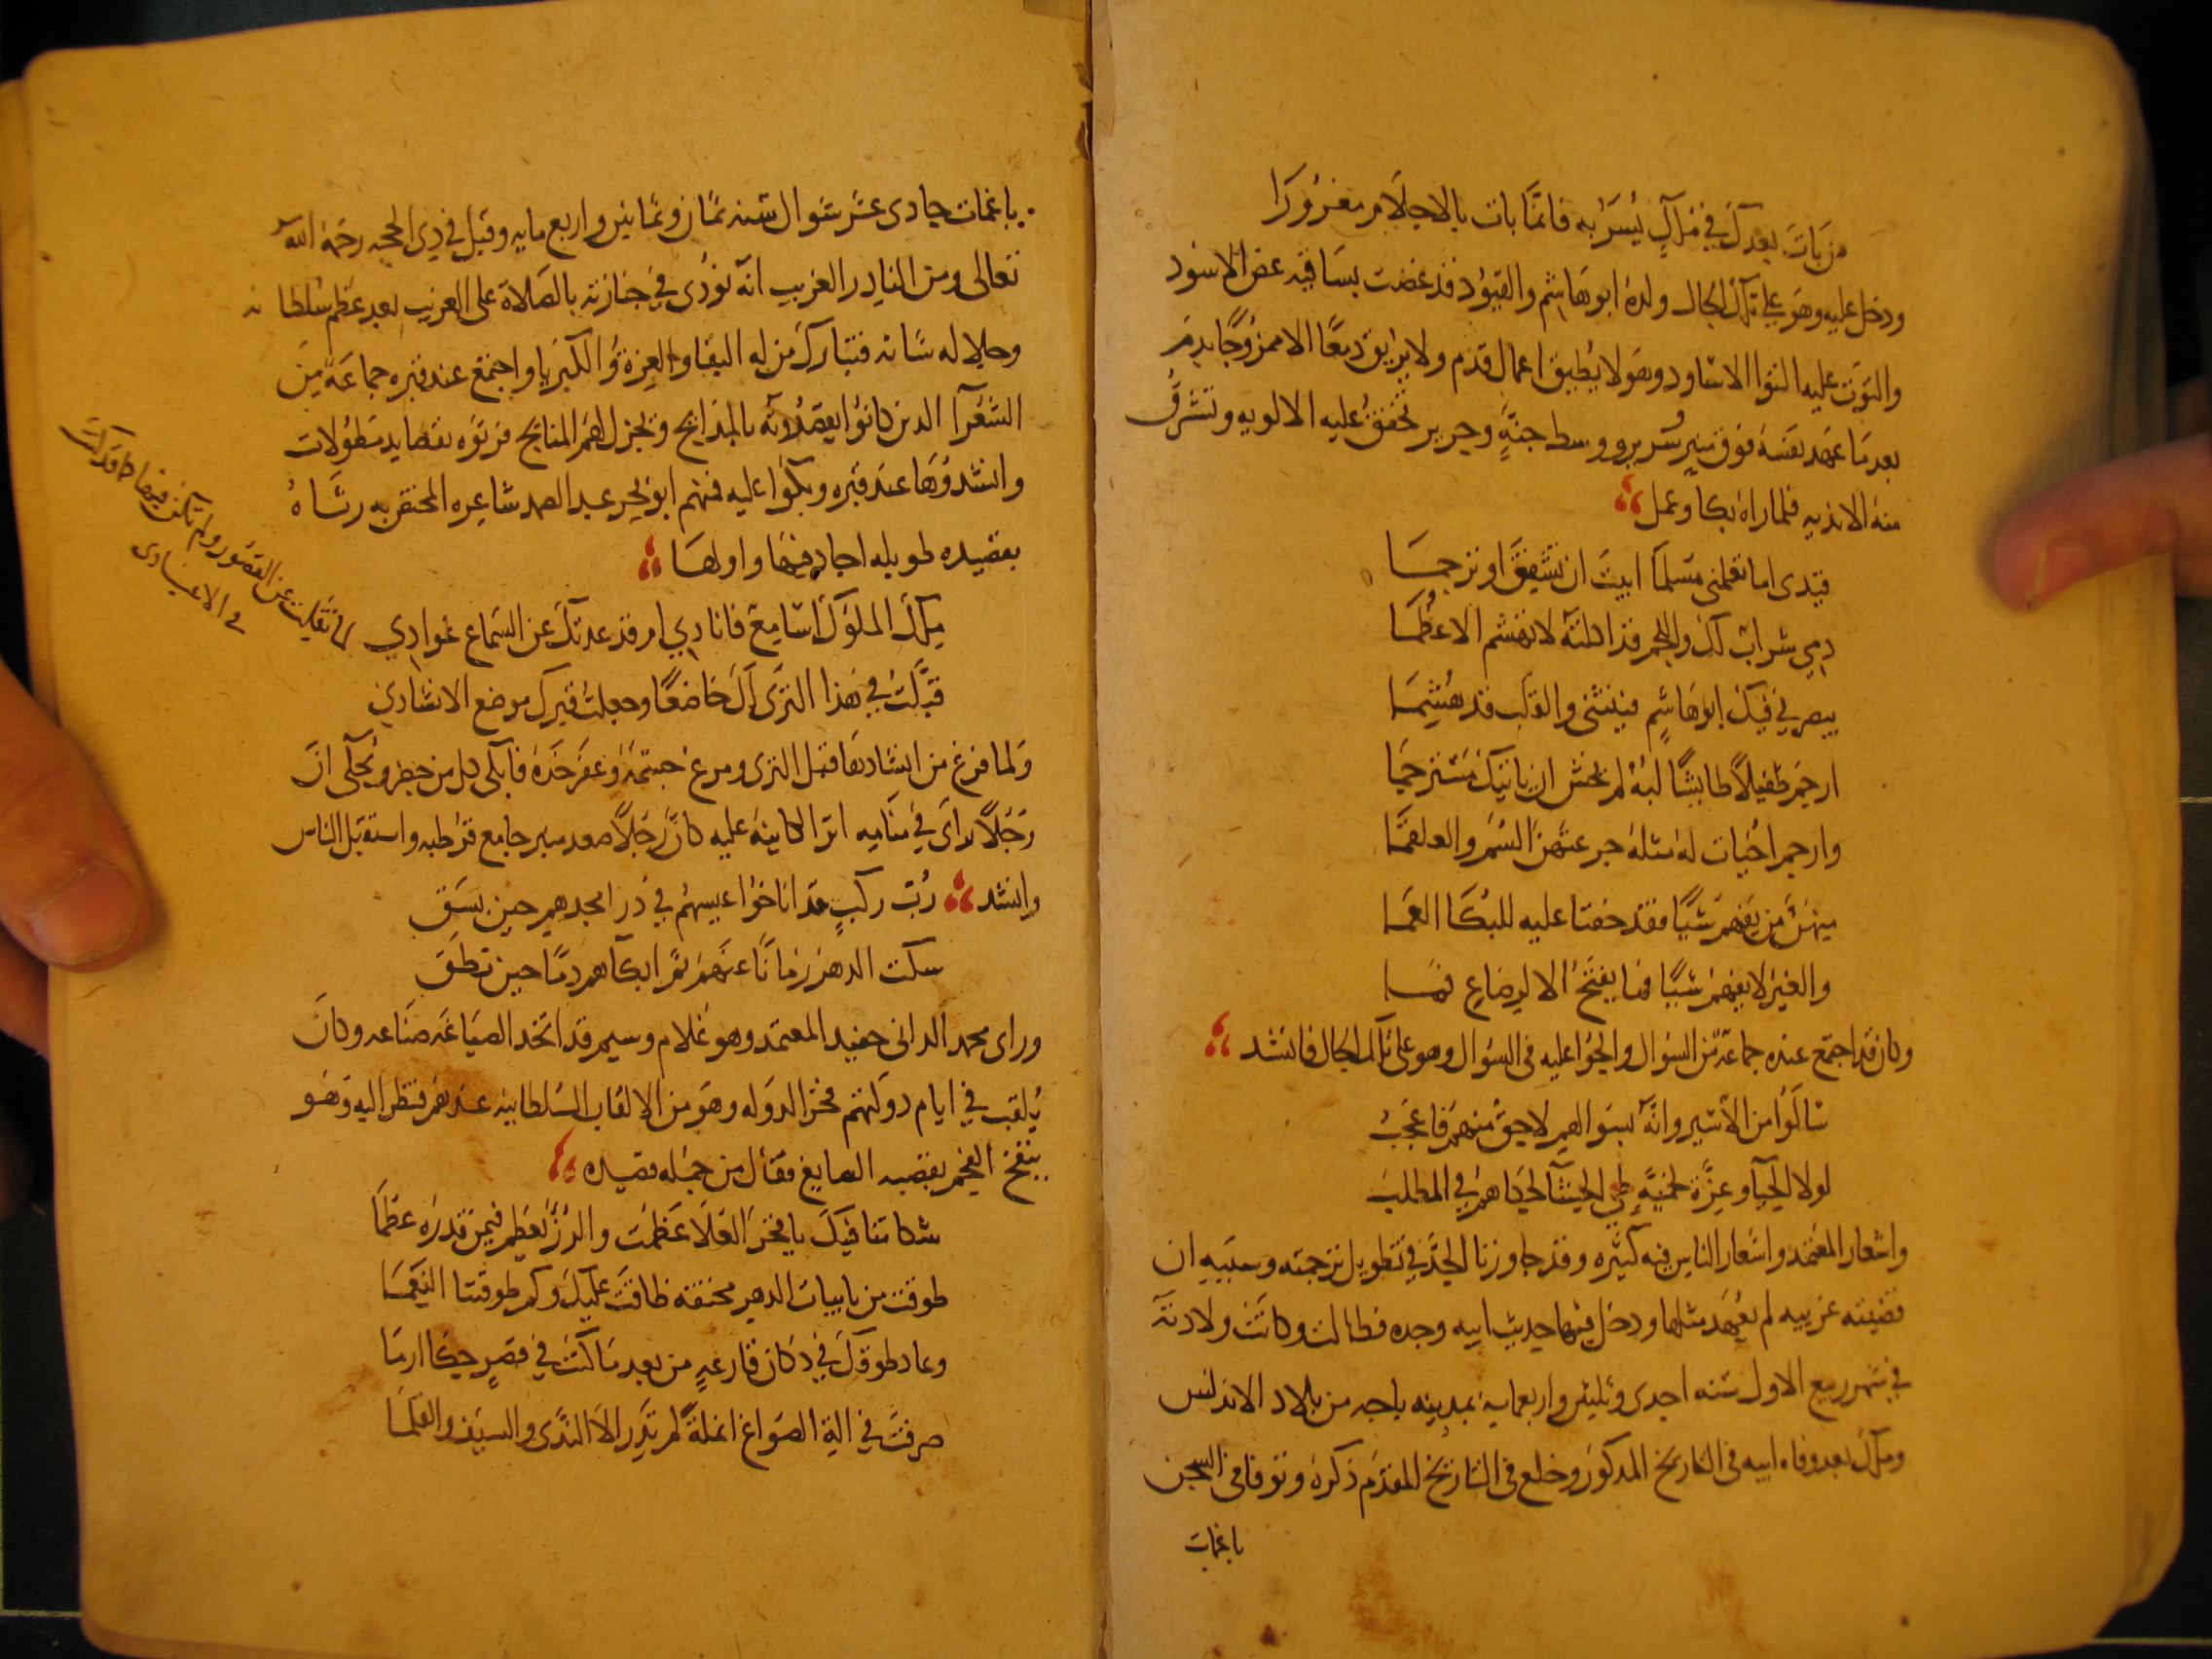 من بات بعدك في ملك يسر به فانما بات بالاحلام مغرورا
ودخل عليه وهو على تلك الحال ولده ابو هاشم والقيود قد عضت بساقيه عض الاسود
والتوت عليه التوا الاساود وهو لا يطيق اعمال قدم ولا يريق دمعا الا ممزوجا بدم
بعد ما عهد نفسه فوق منبر وسرير ووسط جنة وحرير تخفق عليه الالويه وتشرق
منه الانديه فلما راه بكا وعمل
قيدى اما تعلمنى مسلما ابيت ان تشفق او ترحما
دمي شراب لك واللحم قد اكلته لا تهشم الاعظما
يبصرني فيك ابو هاشم فينثنى والقلب قد هشما
ارحم طفيلا طايشا لبه لم يخش ان ياتيك مسترحما
وارحم اخيات له مثله جرعتهن السم والعلقما
منهن من يفهم شيا فقد خفنا عليه للبكا العما
والغير لا يفهم شيا فما يفتح الا لرضاع فما
وكان قد اجتمع عنده جماعة من السوال والحوا عليه فى السوال وهو على تلك الحال فانشد
سالوا من الاسير وانه بسوالهم لاحق منهم فاعجب
لولا الحيا وعزة لخمية طي الحشا لحكاهم في المطلب
واشعار المعتمد واشعار الناس فيه كثيره وقد جاوزنا الحد في تطويل ترجمته وسببه ان
قضيته غريبه لم يعهد مثلها ودخل فيها حديث ابيه وجده فطالت وكانت ولادته
في شهر ربيع الاول سنه احدى وثلثين واربعمايه بمدينه باجه من بلاد الاندلس
وملك بعد وفاه ابيه فى التاريخ المذكور وخلع فى التاريخ المقدم ذكره وتوفا فى السجن
باغمات
باغمات حادى عشر شوال سنه ثمان وثمانين واربع مايه وقيل في ذي الحجه رحمه الله
تعالى ومن النادر الغريب انه نودى في جنازته بالصلاة على الغريب بعد عظم سلطانه
وجلاله شانه فتبارك من له البقا والعزة والكبريا واجتمع عند قبره جماعة من
الشعرآ الدين كانوا يقصدونه بالمدايح ويجزل لهم المنايح فرثوه بقصايد مطولات
وانشدوها عند قبره وبكوا عليه فمنهم ابو بحر عبد الصمد شاعره المختص به رثاه
بقصيده طويله اجاد فيها واولها
ملك الملوك اسامع فانادي ام قد عدتك عن السماع عوادي
لما نقلت عن القصور ولم تكن فيها كما قد كنت
في الاعيادى
قبلت في هذا الثرى لك خاضعا وجعلت قبرك موضع الانشادي
ولما فرغ من انشادها قبل الثرى ومرغ جسمه وعفر خده فابكى كل من حضر ويحكى ان
رجلا راى في منامه اثر الكاينة عليه كان رجلا صعد منبر جامع قرطبه واستقبل الناس
وانشد رب ركب قد اناخوا عيسهم في ذرا مجدهم حين بسق
سكت الدهر زمانا عنهم ثم ابكاهم دما حين نطق
وراى محمد الدانى حفيد المعتمد وهو غلام وسيم قد اتخد الصياغه صناعه وكان
يلقب في ايام دولتهم فخر الدوله وهو من الالقاب السلطانيه عندهم فنظر اليه وهو
ينفخ الفحم بقصبه الصايغ فقال من جمله قصيده
شكاتنا فيك يا فخر العلا عظمت والرزء يعظم فيمن قدره عظما
طوقت من نايبات الدهر مخنقه ضاقت عليك وكم طوقتنا النعما
وعاد طوقك في دكان قارعة من بعد ما كنت في قصر حكا ارما
صرفت في الة الصواغ انملة لم تدر الا الندى والسيف والقلما